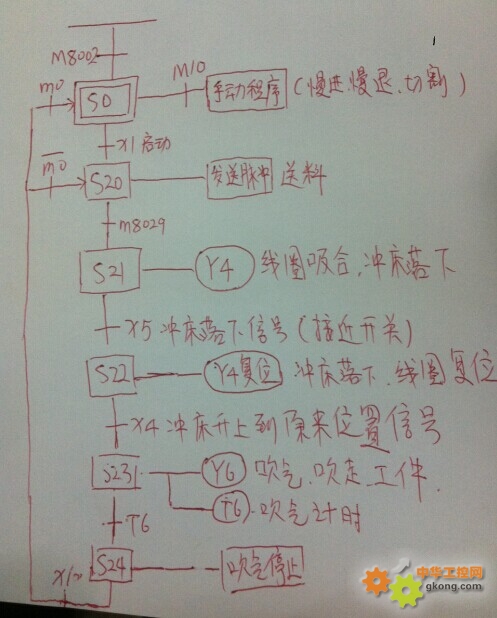 M8002
m0 S0 M10 手动程序 (慢进、慢退、切割)
X1 启动
m0 S20 发送脉冲 送料
m8029
S21 Y4 线圈吸合、冲床落下
X5 冲床落下信号 (接近开关)
S22 Y4复位 冲床落下、线圈复位
X4 冲床升上到原来位置信号
S23 Y6 吹气、吹走工件.
T6 吹气计时
T6
S24 吹气停止
中华工控网
gkong.com